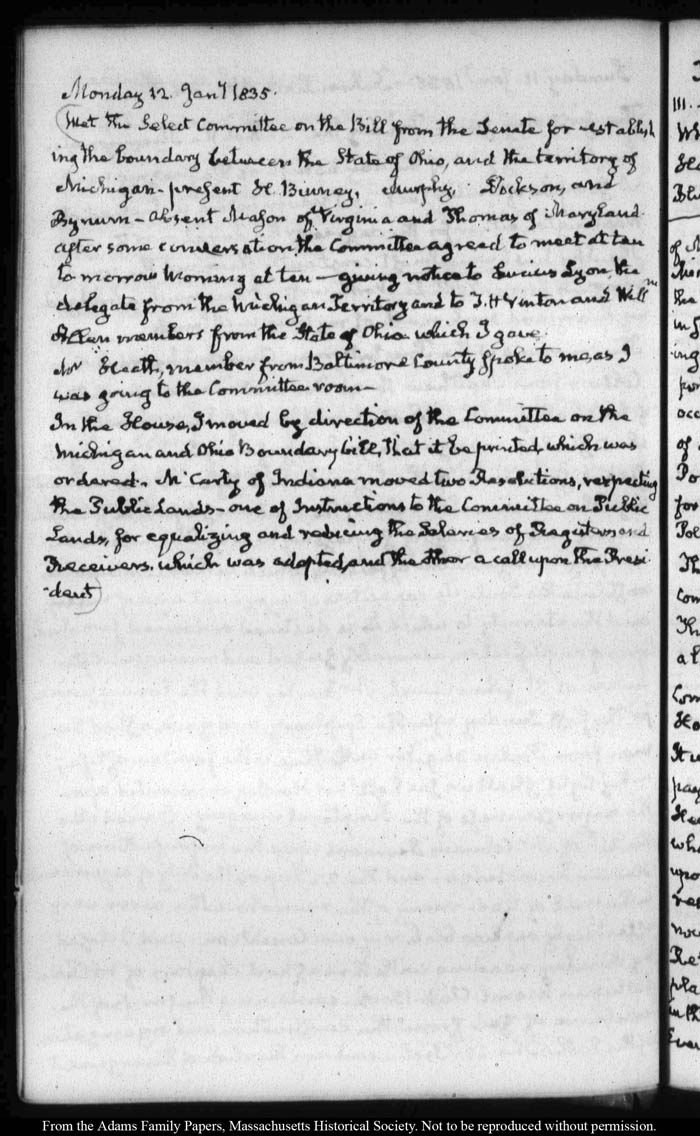 Monday 12. Jany 1835.
Met the Select Committee on the Bill from the Senate for establish
ing the boundary between the State of Ohio, and the territory of
Michigan - present H. Binney, Murphy, Dickson, and
Bynum - absent Mason of Virginia and Thomas of Maryland.
after some conversation, the Committee agreed to meet at ten
to morrow Morning at ten - giving notice to Lucius Lyon, the
delegate from the Michigan Territory and to S. F. Vinton and Willm
Allen members from the State of Ohio which I gave.
Mr Heath, member from Baltimore County spoke to me, as I
was going to the Committee room -
In the House, I moved by direction of the Committee on the
Michigan and Ohio Boundary bill, that it be printed, which was
ordered. McCarty of Indiana moved two Resolutions, respecting
the Public Lands - one of Instructions to the Committee on Public
Lands, for equalizing and reducing the Salaries of Registers and
Receivers. which was adopted, and the other a call upon the Presi
dent
From the Adams Family Papers, Massachusetts Historical Society. Not to be reproduced without permission.